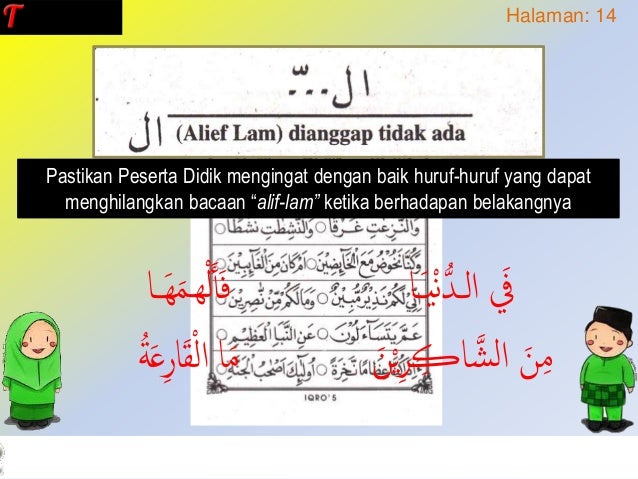 T
Halaman: 14
ال...ّ
ال (Alief Lam) dianggap tidak ada
Pastikan Peserta Didik mengingat dengan baik huruf-huruf yang dapat
menghilangkan bacaan “alif-lam” ketika berhadapan belakangnya
وَالنّٰزِعٰتِ غَرْقًا ○ وَالنّٰشِطٰتِ نَشْطًا ○
وَكُنَّا نَخُوْضُ مَعَ الْخَآئِضِيْنَ ○ اَمْ كَانَ مِنَ الْغَآئِبِيْنَ ○
فِي الـدُّنْيَـا فَأَلْهَمَهَـا
اِنِّيْ لَكُمْ نَذِيْرٌ مُّبِيْنٌ ○ وَمَا لَكُمْ مِّنْ نّٰصِرِيْنَ ○
عَمَّ يَتَسَآءَلُوْنَ ○ عَنِ النَّبَاِ الْعَظِيْمِ ○
مِنَ الشَّاكِرِيْنَ مَا الْقَارِعَةُ
عِظَامًا نَّخِرَةً ○ اُولٰٓئِكَ اَصْحٰبُ الْجَنَّةِ
IQRO' 5